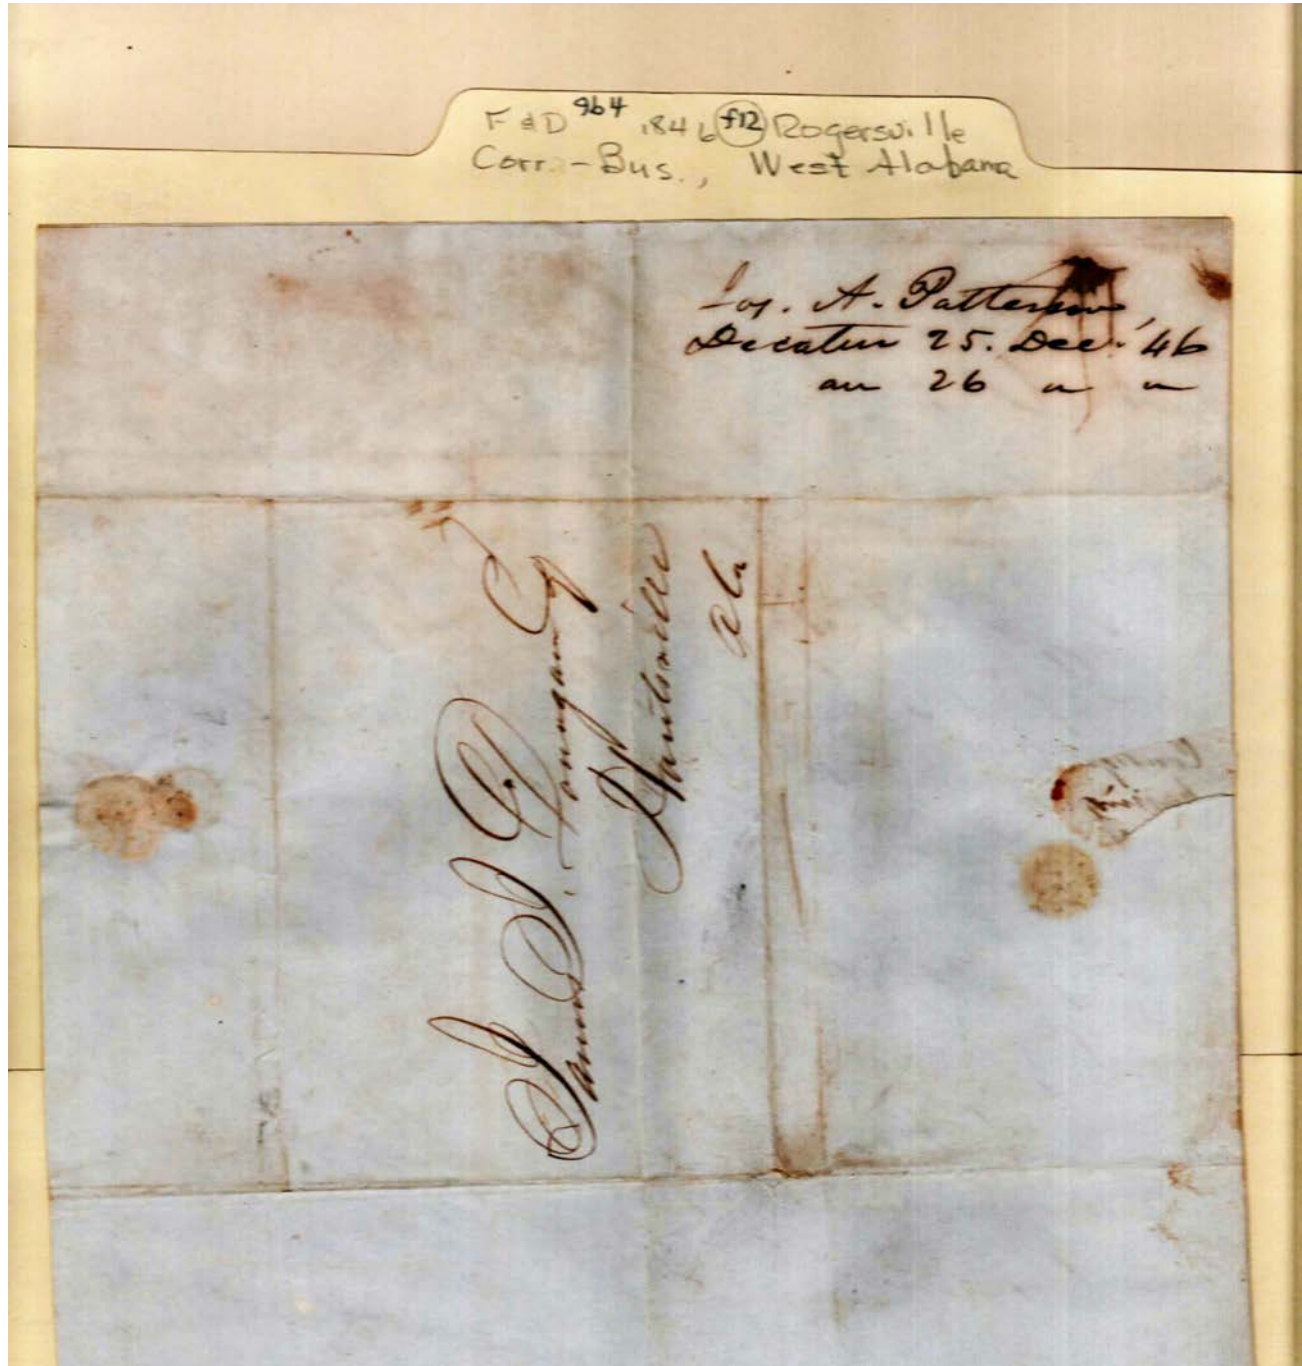 F & D 9b4 1846 f12 Rogersville
Corr. - Bus., West Alabama
Jos. A. Patterson,
Decatur 25. Dec. '46
an 26 " "
James J. Donegan Esq
Huntsville
Ala